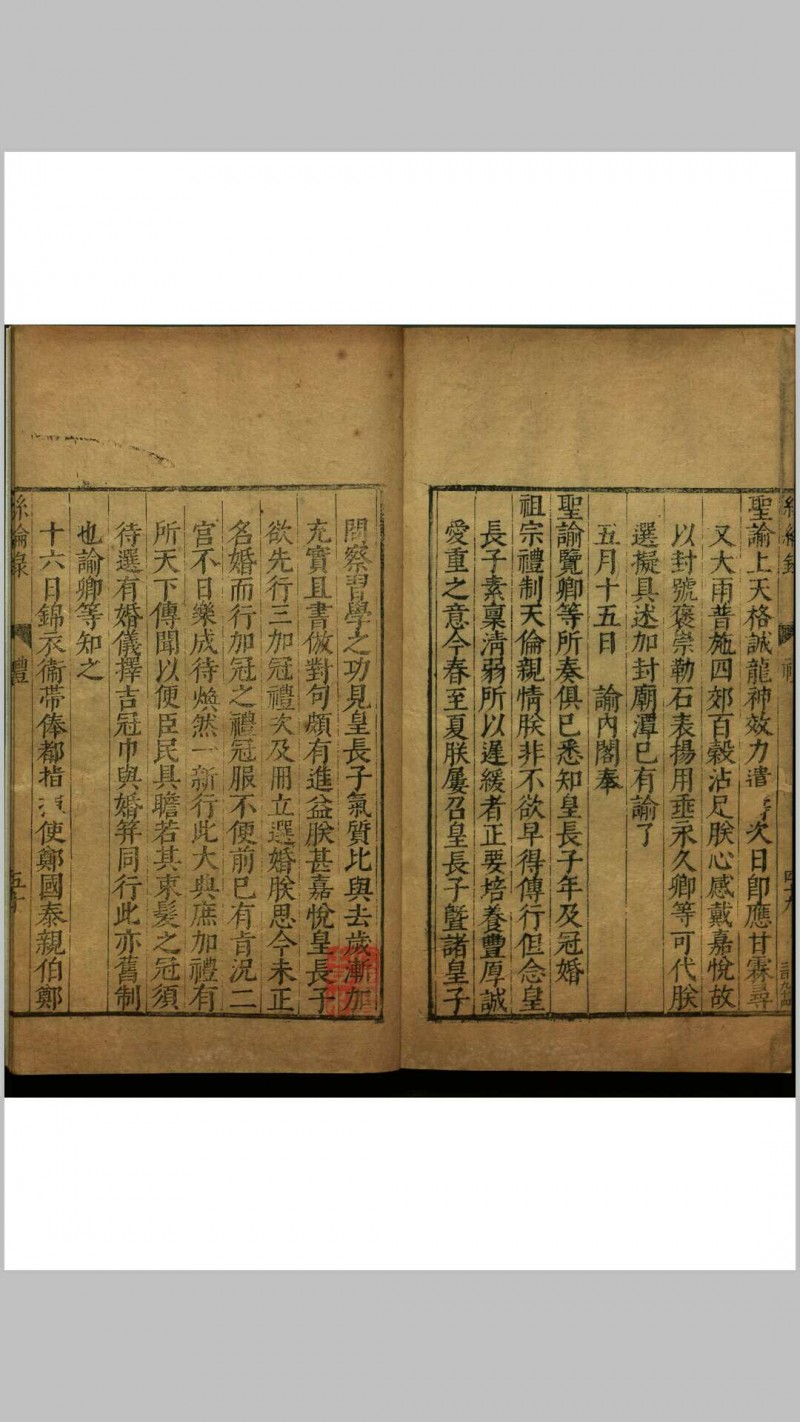 聖諭上天格誠龍神效力遣次日卽應甘霖尋
又大雨普施四郊百穀沾足朕心感戴嘉悅故
以封號褒崇勒石表揚用垂永久卿等可代朕
選擬具述加封廟潭已有諭了
五月十五日　諭內閣奉
聖諭覽卿等所奏俱已悉知皇長子年及冠婚
祖宗禮制天倫親情朕非不欲早得傳行但念皇
長子素稟清弱所以遲緩者正要培養豐厚誠
愛重之意今春至夏朕屢召皇長子曁諸皇子
問察習學之功見皇長子氣質比與去歲漸加
充實且書倣對句頗有進益朕甚嘉悅皇長子
欲先行三加冠禮次及冊立選婚朕思今未正
名婚而行加冠之禮冠服不便前已有旨況二
宮不日樂成待煥然一新行此大典庶加禮有
所天下傳聞以便臣民具瞻若其束髮之冠須
待選有婚儀擇吉冠巾與婚筓同行此亦舊制
也諭卿等知之
十六日錦衣衞帶俸都指使鄭國泰親伯鄭
絲綸錄　禮　五十